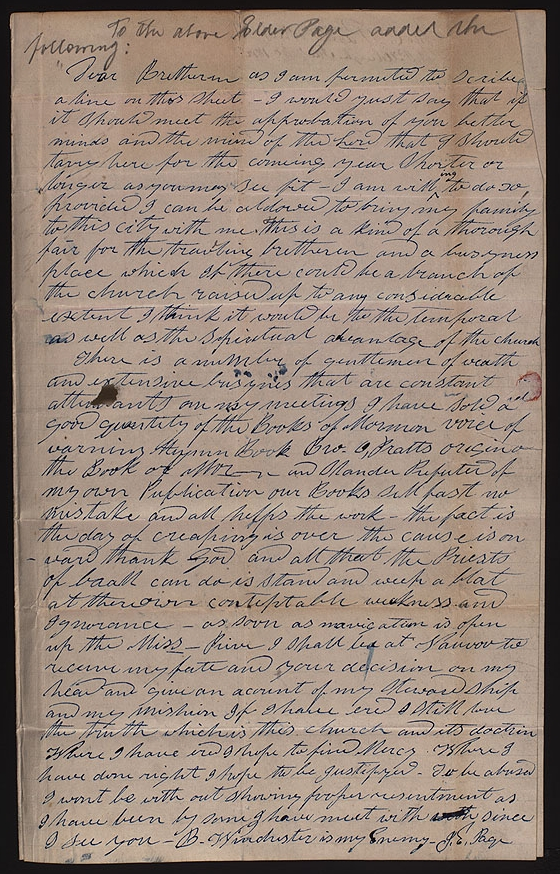 To the above Elder Page added the
following:
"Dear Bretheren as I am permited to scribe
a line on this sheet - I would just say that if
it should meet the approbation of you better
minds and the mind of the Lord that I should
tarry here for the comeing year shorter or
longer as you may see fit - I am willing to do so,
provided I can be aldowed to bring my family
to this city with me. this is a kind of a thorough
fair for the travling bretheren and a busyness
place which if there could be a branch of
the church raised up to any considerable
extent I think it would be to the temporal
as well as the spiritual avantage of the church
There is a number of gentlemen of wealth
and extensive busynis that are constant
attendants on my meetings I have sold a
good quantity of the Books of Mormon voice of
warning Hymn Book Bro. O, Pratts origin
the Book of and Slander Refuted of
my own Publication our Books sell fast no
mistake and all helps the work - the fact is
the day of creaping is over the cause is on
ward thank God and all that the Priests
of baall can do is stand and weep a blat
at there own conteptable weekness and
Ignorance - as soon as navigation is open
up the Miss - River I shall be at Nauvoo to
receive my fate and your decision on my
head and give an acount of my Steward ship
and my mishion If I have ered I still love
the truth which is this church and its doctrin
Where I have ired I hope to find Mercy. Where I
have done right I hope to be justifyed - To be abused
I wont be with out showing proper resentment as
I have been by some I have meet with since
I see you - B. Winchester is my Enemy - J. E. Page